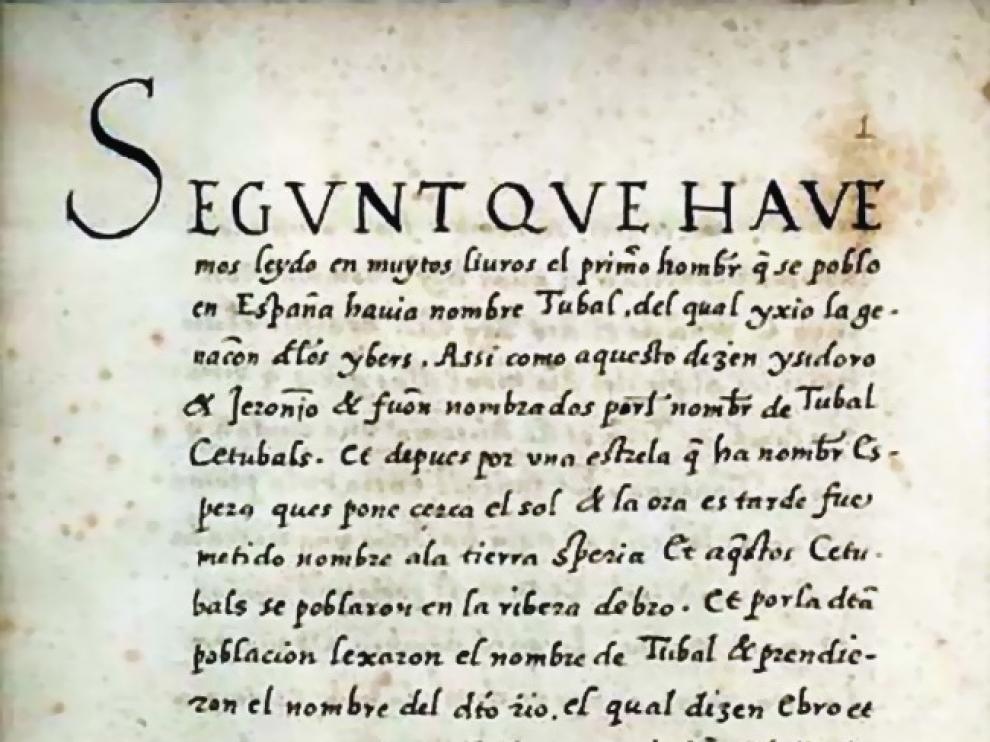 1
SEGVNT QVE HAVE
mos leydo en muytos liuros el primo hombr q̃ se poblo
en España hauia nombre Tubal, del qual yxio la ge-
nacõn dlos ybers. Assi como aquesto dizen ysidoro
& Jeronĩo & fuõn nombrados porl nombr de Tubal
Cetubals. Et depues por vna estrela q̃ ha nombr Es-
pero ques pone cerca el sol & la ora es tarde fue
metido nombre ala tierra Speria Et aq̃stos Cetu-
bals se poblaron en la ribera debro. Et por la dtã
poblacion lexaron el nombre de Tubal & prendie-
ron el nombre del dto rio. el qual dizen Ebro et